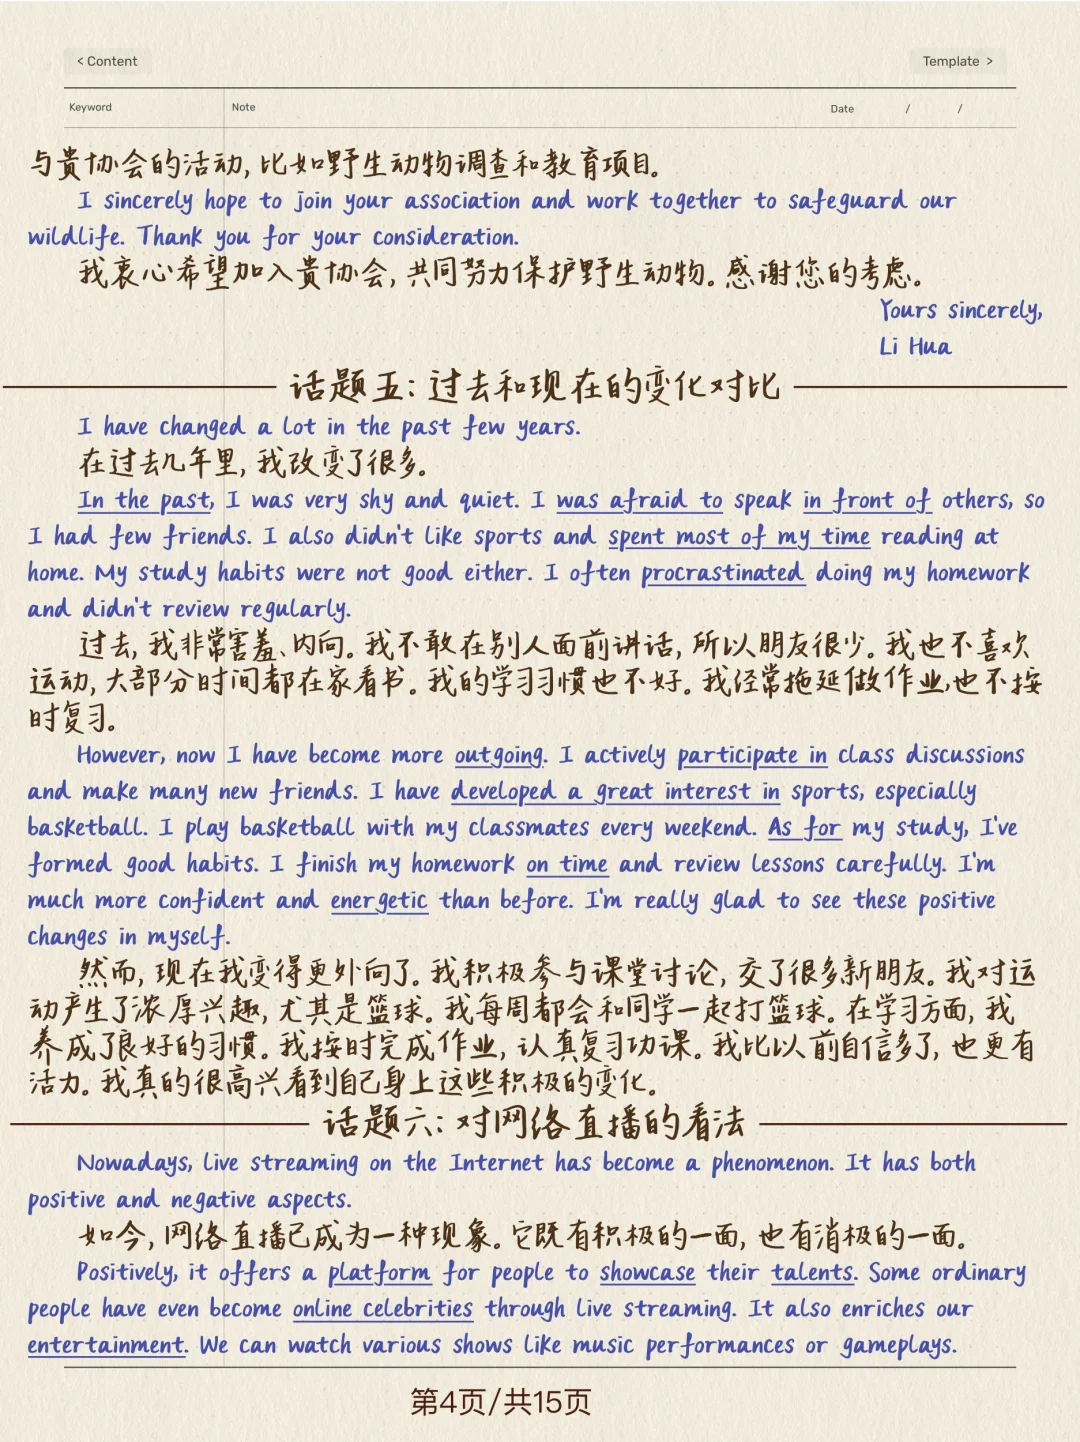 < Content
Template >
Keyword
Note
Date / /
与贵协会的活动, 比如野生动物调查和教育项目。
I sincerely hope to join your association and work together to safeguard our
wildlife. Thank you for your consideration.
我衷心希望加入贵协会, 共同努力保护野生动物。感谢您的考虑。
Yours sincerely,
Li Hua
话题五: 过去和现在的变化对比
I have changed a lot in the past few years.
在过去几年里, 我改变了很多。
In the past, I was very shy and quiet. I was afraid to speak in front of others, so
I had few friends. I also didn't like sports and spent most of my time reading at
home. My study habits were not good either. I often procrastinated doing my homework
and didn't review regularly.
过去, 我非常害羞、内向。我不敢在别人面前讲话, 所以朋友很少。我也不喜欢
运动, 大部分时间都在家看书。我的学习习惯也不好。我经常拖延做作业,也不按
时复习。
However, now I have become more outgoing. I actively participate in class discussions
and make many new friends. I have developed a great interest in sports, especially
basketball. I play basketball with my classmates every weekend. As for my study, I've
formed good habits. I finish my homework on time and review lessons carefully. I'm
much more confident and energetic than before. I'm really glad to see these positive
changes in myself.
然而, 现在我变得更外向了。我积极参与课堂讨论, 交了很多新朋友。我对运
动产生了浓厚兴趣, 尤其是篮球。我每周都会和同学一起打篮球。在学习方面, 我
养成了良好的习惯。我按时完成作业, 认真复习功课。我比以前自信多了, 也更有
活力。我真的很高兴看到自己身上这些积极的变化。
话题六: 对网络直播的看法
Nowadays, live streaming on the Internet has become a phenomenon. It has both
positive and negative aspects.
如今, 网络直播已成为一种现象。它既有积极的一面, 也有消极的一面。
Positively, it offers a platform for people to showcase their talents. Some ordinary
people have even become online celebrities through live streaming. It also enriches our
entertainment. We can watch various shows like music performances or gameplays.
第4页/共15页